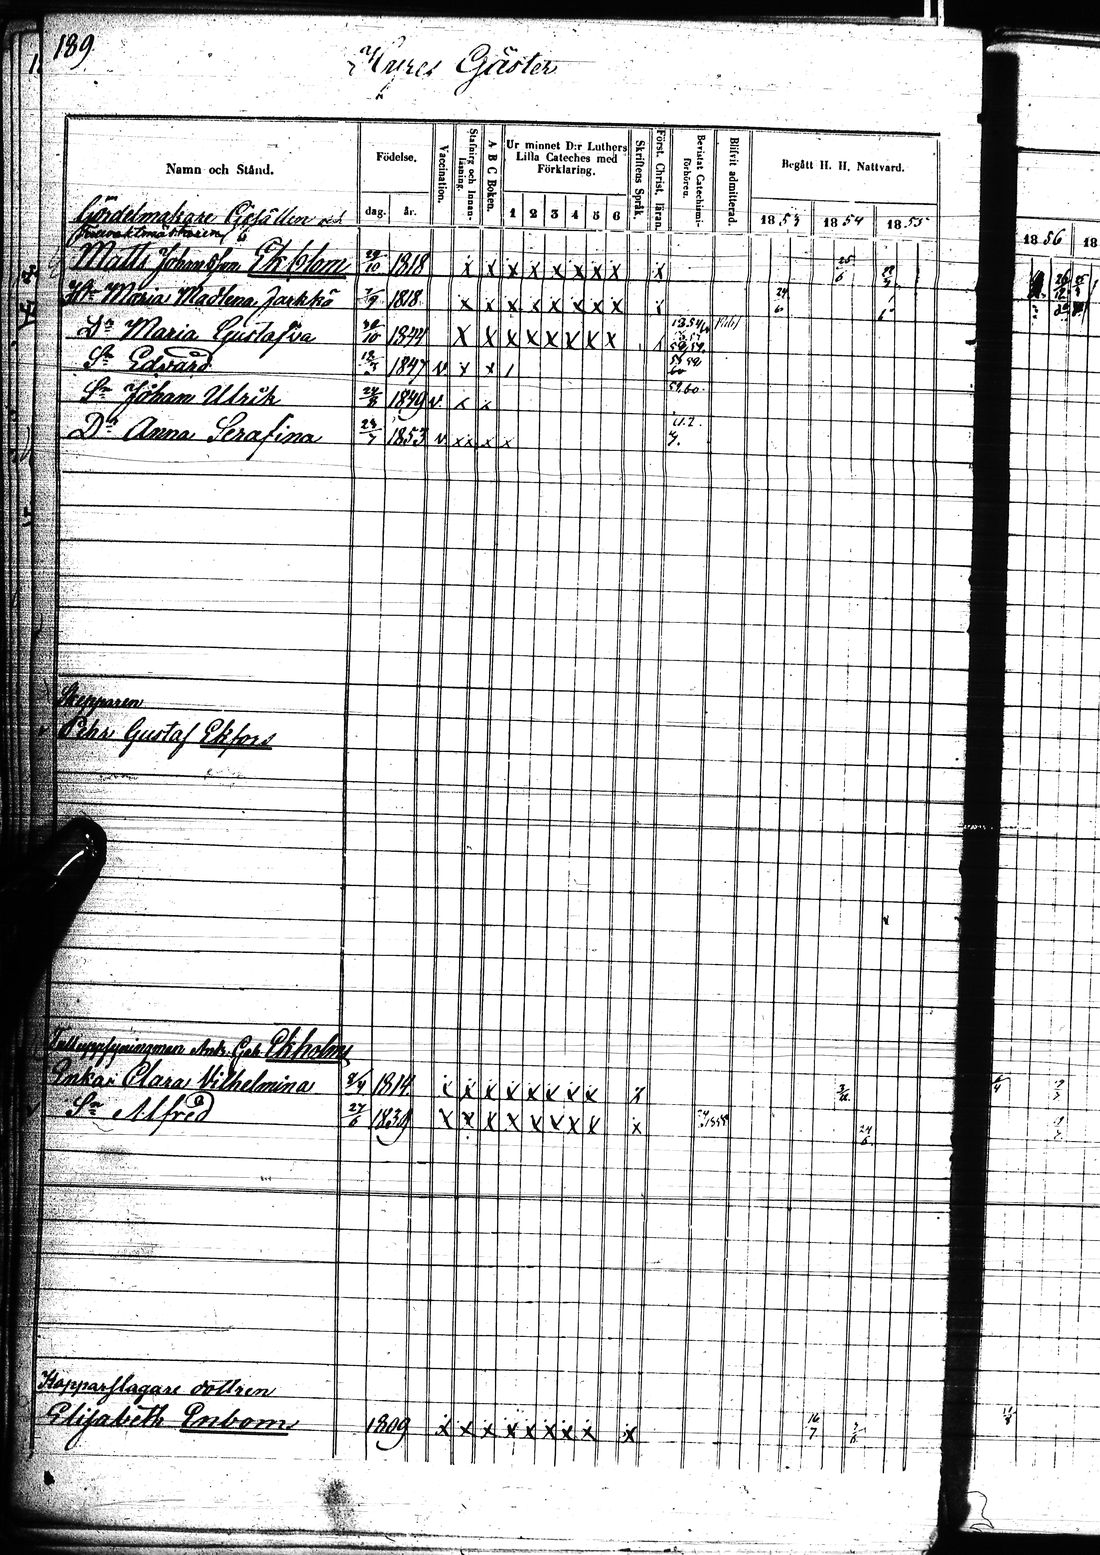 189
Hyres Gäster
Namn och Stånd.
Födelse.
dag. år.
Vaccination.
Stafning och Innanläsning.
A B C Boken.
Ur minnet D:r Luthers Lilla Cateches med Förklaring.
1 2 3 4 5 6
Skriftens Språk.
Först. Christ. läran.
Bevistat Catechismiförhören.
Blifvit admitterad.
Begått H. H. Nattvard.
1853 1854 1855
1856 18
Gördelmakare Gesällen
Matts Johansson Ekblom 29/10 1818 x x x x x x x x x 25/6
Hu Maria Madlena Jarkkö 7/9 1818 x x x x x x x x 24/6
Dr Maria Gustafva 30/10 1844 x x x x x x x x
Sn Edvard 1847 v x x 1
Sn Johan Ulrik 1849 v. x x 59.60.
Dr Anna Serafina 23/7 1853 v xx x x
Skepparen
Pehr Gustaf Ekfors
Tulluppsyningman And. Gab. Ekholms
Enkan Clara Vilhelmina 1814. x x x x x x x x x
Sn Alfred 27/6 1839 x x x x x x x x x 24/6
Kopparslagare dottren
Elisabeth Enbom 1809 x x x x x x x x x 16/7